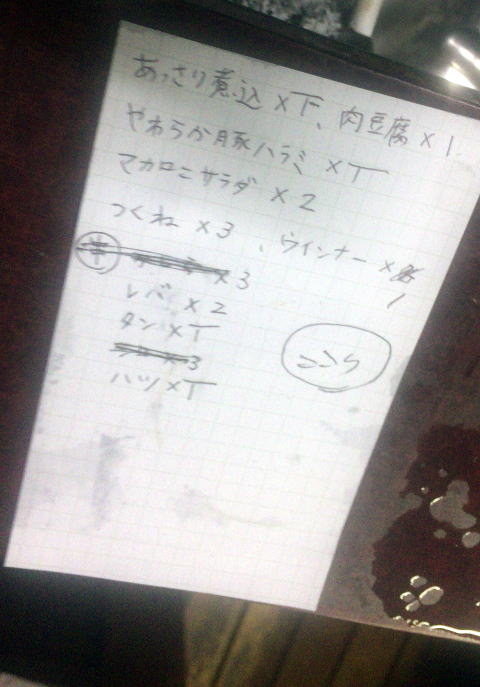 あっさり煮込×下、肉豆腐×1
やわらか豚ハラミ×T
マカロニサラダ×2
つくね×3、ウインナー×1
×3
レバ×2
タン×T
3
ハツ×T